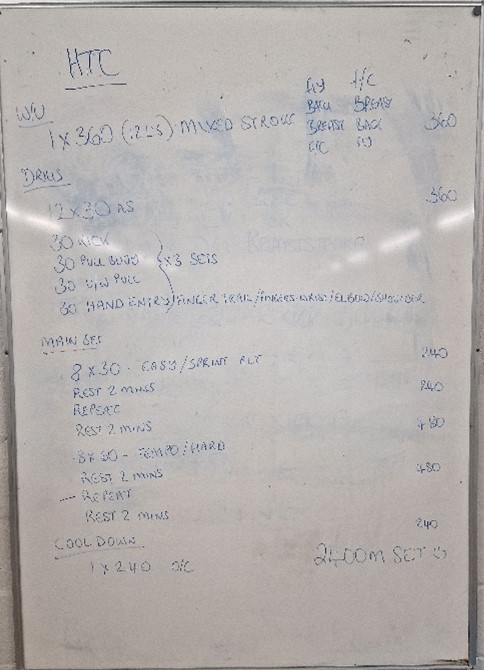 HTC
W/U
FLY F/C
BACK BREAST
1 X 360 (12LS) MIXED STROKE BREAST BACK 360
F/C FLY
DRILLS
12 X 30 AS 360
30 KICK
30 PULL BUOY } X 3 SETS
30 PULL
30 HAND ENTRY/FINGER TRAIL/FINGERS-WRIST/ELBOW/SHOULDER
MAIN SET
8 X 30 - EASY/SPRINT ALT 240
REST 2 MINS
REPEAT 240
REST 2 MINS
8 X 60 - TEMPO/HARD 480
REST 2 MINS
- REPEAT 480
REST 2 MINS
COOL DOWN 240
1 X 240
2400M SET